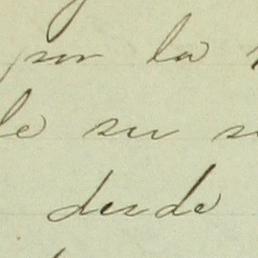 por la
de su
desde